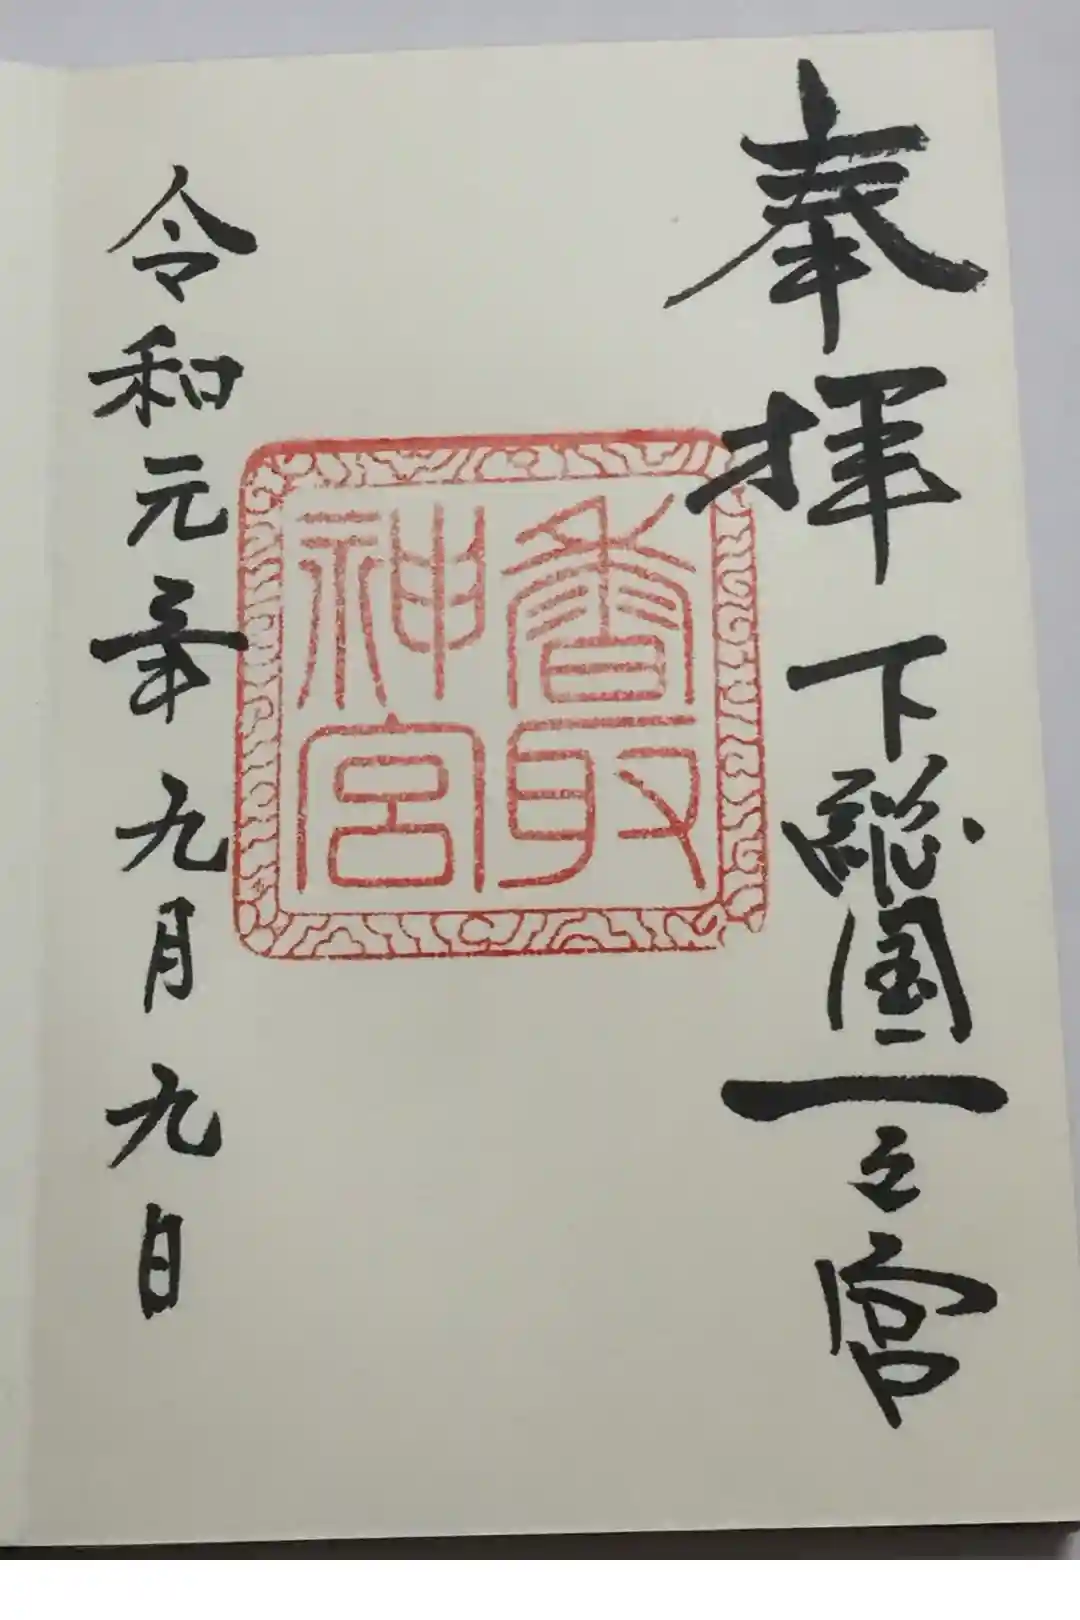 奉拝 下総國一之宮
香取
神宮
令和元年九月九日